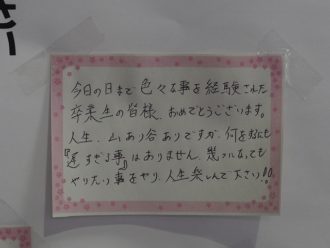 今日の日まで色々な事を経験された
卒業生の皆様、おめでとうございます。
人生、山あり谷ありですが、何をするにも
『遅すぎる事』はありません。幾つになっても
やりたい事をやり、人生楽しんで下さい!!